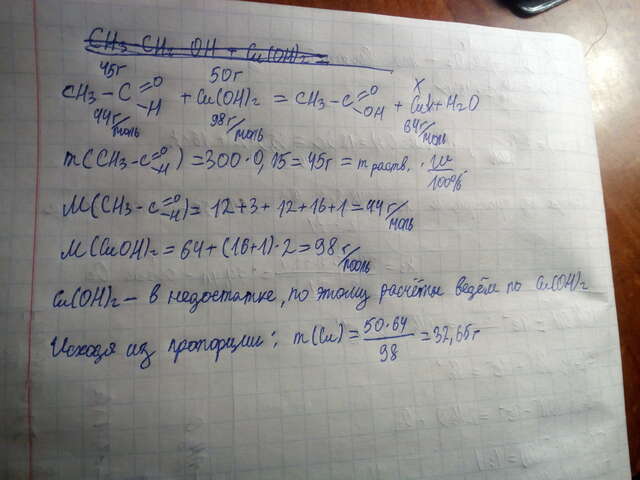 CH3 CH2 OH + Cu(OH)2 =
45г 50г x
CH3-C=O-H + Cu(OH)2 = CH3-C=O-OH + Cu↓ + H2O
44г/моль 98г/моль 64г/моль
m(CH3-C=O-H) = 300·0,15 = 45г = m раств. · w/100%
M(CH3-C=O-H) = 12+3+12+16+1 = 44 г/моль
M(CuOH)2 = 64+(16+1)·2 = 98 г/моль
Cu(OH)2 - в недостатке, по этому расчёты ведём по Cu(OH)2
Исходя из пропорции: m(Cu) = 50·64/98 = 32,65г